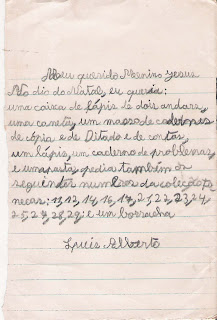 Meu querido Menino Jesus
No dia do Natal, eu queria:
uma caixa de lápis de dois andares,
uma caneta, um masso de cadernos
de cópia e de Ditado e de contas,
um lápis, um caderno de problemas,
e uma pasta, pedia também os
seguintes numeros da coleção
necas: 13, 14, 16, 17, 21, 22, 23, 24,
25, 27, 28, 29, e um borracha
Luís Alberto